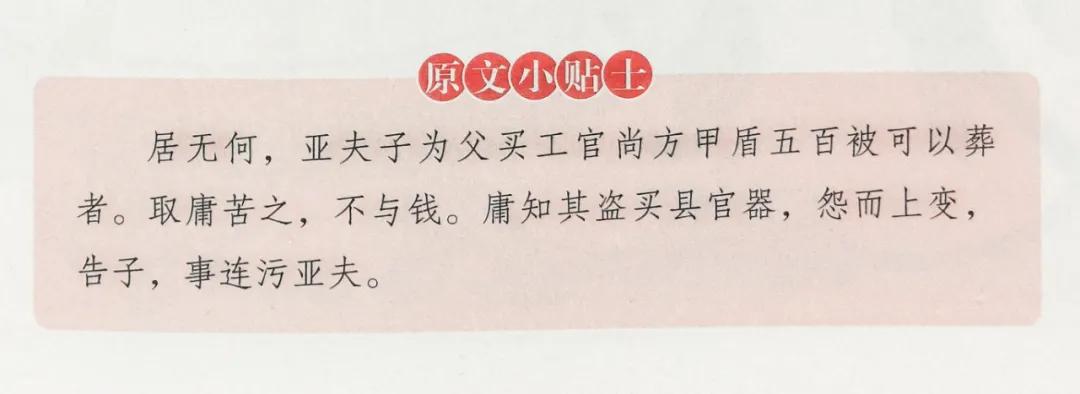 原文小贴士
居无何，亚夫子为父买工官尚方甲盾五百被可以葬
者。取庸苦之，不与钱。庸知其盗买县官器，怨而上变，
告子，事连污亚夫。